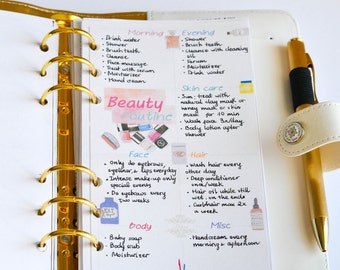 Morning
• Drink water
• Shower
• Brush teeth
• Cleanse
• Face massage
• Treat with serum
• Moisturizer
• Hand cream
Evening
• Shower
• Brush teeth
• Cleanse with cleansing oil
• Serum
• Moisturizer
• Drink water
Beauty
Routine
Skin care
Sun: treat with
natural clay mask or
honey mask or skin
mask for 10 min
• Wash face 2x/day
• Body lotion after
shower
Face
• Only do eyebrows,
eyeliner & lips everyday
• Intense make-up only
special events
• Do eyebrows every
two weeks
Hair
• Wash hair every
other day
• Deep conditioner
once/week
• Hair oil while still
wet on the ends
• Curl hair max 2x
a week
Body
• Baby soap
• Body scrub
• Moisturizer
Misc
• Handcream every
morning & afternoon